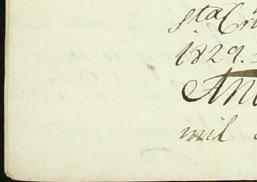 sta Cr
1829.
An
mil